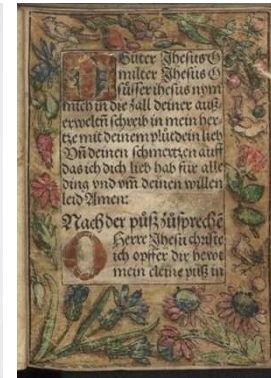 O Güter Jhesus O
milter Jhesus O
süsser ihesus nym
mich in die zall deiner ausz
erweltñ schreib in mein her
tze mit deinem plüt dein lieb
Vñ deinen schmertzen auff
das ich dich lieb hab für alle
ding vnd vm̃ deinen willen
leid Amen:
Nach der püsz zusprechē
O Herre Jhesu christe
ich opffer dir hewt
mein cleine püsz in